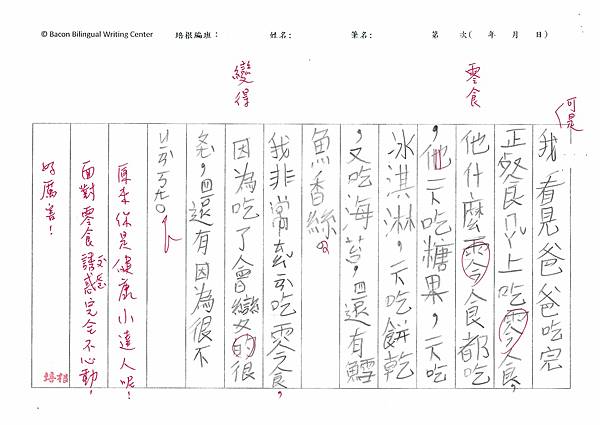 © Bacon Bilingual Writing Center 培根編班： 姓名： 筆名： 第 次( 年 月 日)
可是
我看見爸爸吃完
正餐會ㄇㄚˇ上吃零食，
零食
他什麼零食都吃
，他一下吃糖果，一下吃
冰淇淋，一下吃餅乾
，又吃海苔，還有鱈
魚香絲。
我非常不吃零食，
變得
因為吃了會變的很
多，還有因為很不
原來你是健康小達人呢！
面對零食誘惑完全不心動，
好厲害！
培根